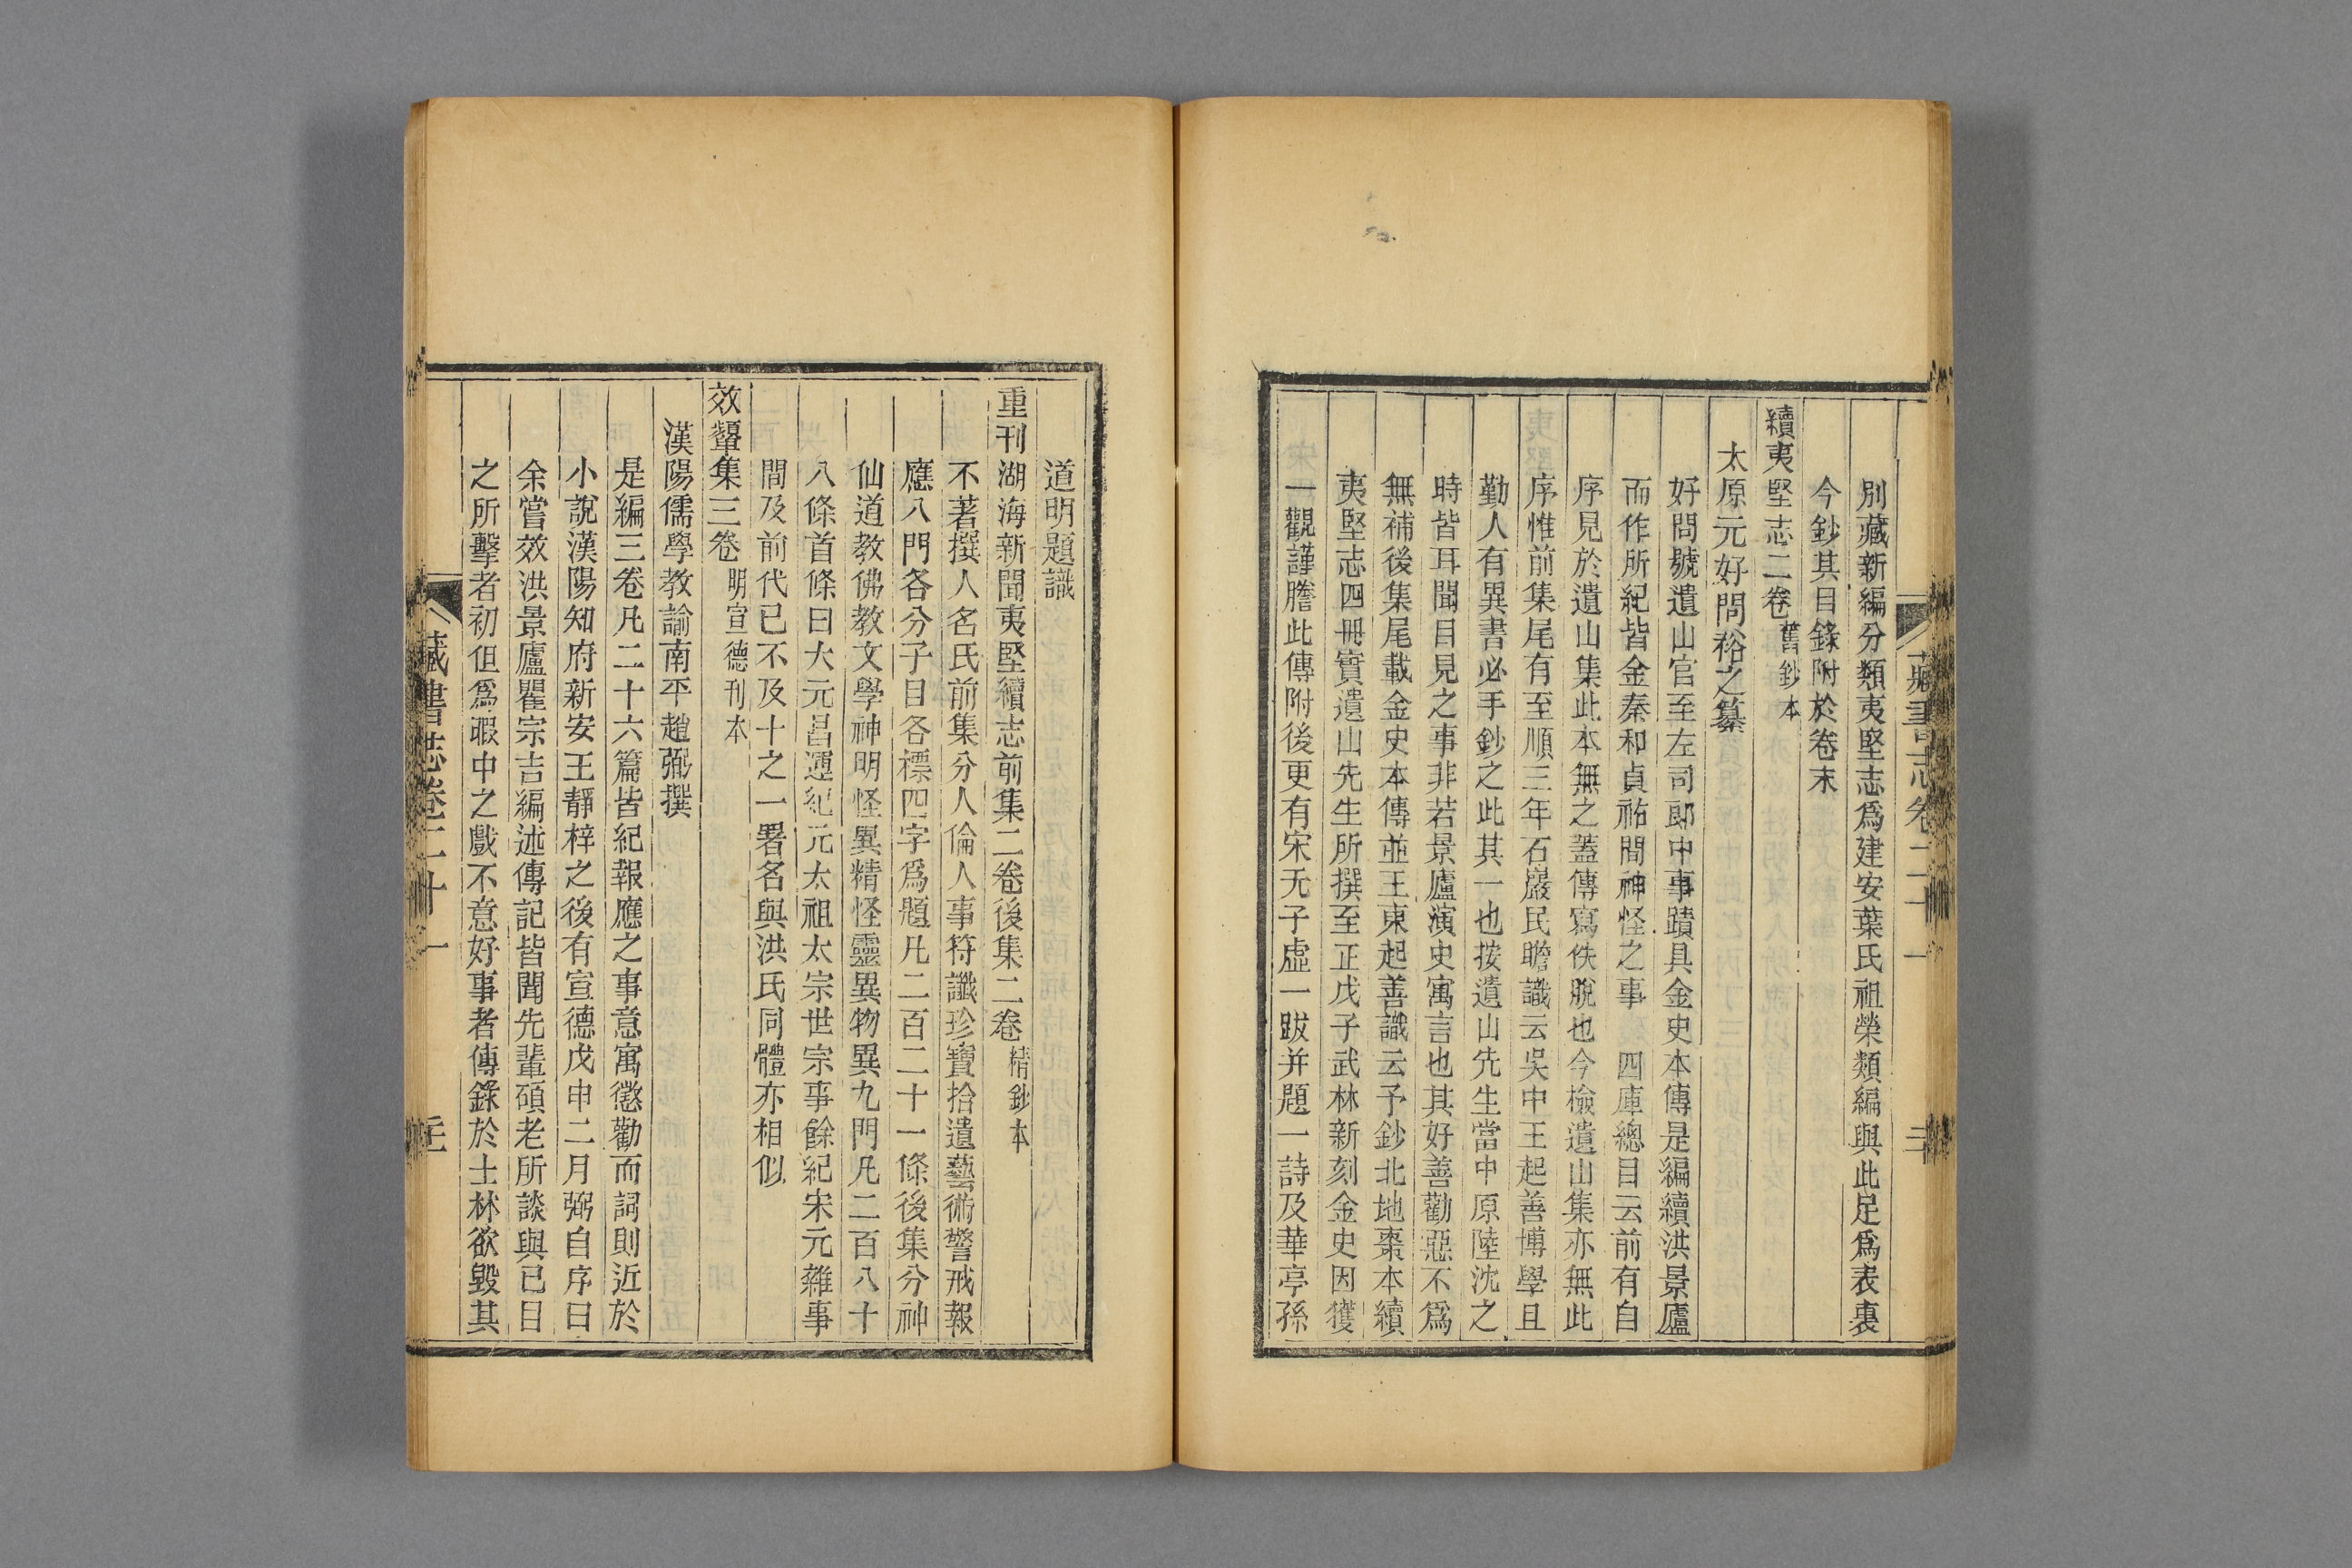 別藏新編分類夷堅志爲建安葉氏祖榮類編與此足爲表裏
今鈔其目錄附於卷末
續夷堅志二卷舊鈔本
太原元好問裕之纂
好問號遺山官至左司郎中事蹟具金史本傳是編續洪景廬
而作所紀皆金泰和貞祐間神怪之事 四庫總目云前有自
序見於遺山集此本無之蓋傳寫佚脫也今檢遺山集亦無此
序惟前集尾有至順三年石巖民瞻識云吳中王起善博學且
勤人有異書必手鈔之此其一也按遺山先生當中原陸沈之
時皆耳聞目見之事非若景廬演史寓言也其好善勸惡不爲
無補後集尾載金史本傳並王東起善識云予鈔北地棗本續
夷堅志四冊實遺山先生所撰至正戊子武林新刻金史因獲
一觀謹謄此傳附後更有宋无子虛一跋并題一詩及華亭孫
道明題識
重刊湖海新聞夷堅續志前集二卷後集二卷精鈔本
不著撰人名氏前集分人倫人事符讖珍寶拾遺藝術警戒報
應八門各分子目各標四字爲題凡二百二十一條後集分神
仙道教佛教文學神明怪異精怪靈異物異九門凡二百八十
八條首條曰大元昌運紀元太祖太宗世宗事餘紀宋元雜事
間及前代已不及十之一署名與洪氏同體亦相似
效顰集三卷明宣德刊本
漢陽儒學教諭南平趙弼撰
是編三卷凡二十六篇皆紀報應之事意寓懲勸而詞則近於
小說漢陽知府新安王靜梓之後有宣德戊申二月弼自序曰
余嘗效洪景廬瞿宗吉編述傳記皆聞先輩碩老所談與已目
之所擊者初但爲暇中之戲不意好事者傳錄於士林欲毀其
藏書志卷二十一